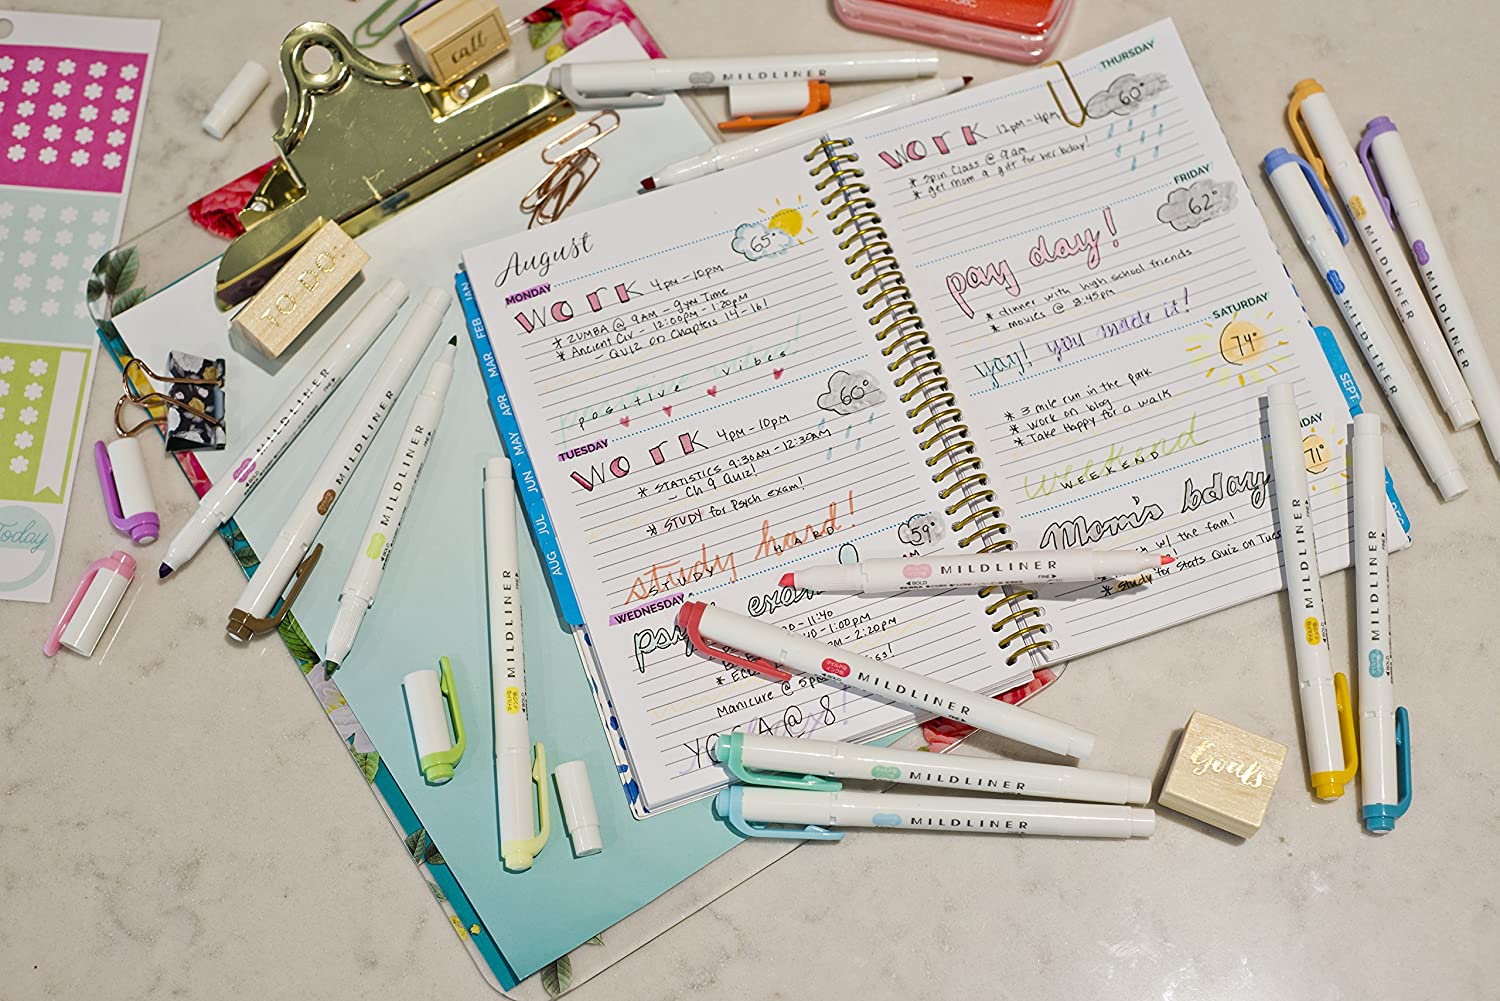 call
TO DO:
Today
Goals
August
MONDAY
WORK 4pm - 10pm
* ZUMBA @ 9AM - gym Time
* Ancient Civ - 12:00pm - 1:20pm
- Quiz on Chapters 14-16!
positive vibes
65°
TUESDAY
WORK 4pm - 10pm
* STATISTICS 9:30AM - 12:30AM
- Ch 9 Quiz!
* STUDY for Psych exam!
study hard!
STUDY HARD
60°
WEDNESDAY
59°
Manicure @
YOGA @ 8
THURSDAY
WORK 12pm - 4pm
* Spin Class @ 9am
* get mom a gift for her bday!
60°
FRIDAY
pay day!
* dinner with high school friends
* movies @ 8:45pm
yay! you made it!
62°
SATURDAY
* 3 mile run in the park
* work on blog
* Take Happy for a walk
weekend
WEEKEND
74°
71°
Mom's bday
w/ the fam!
* Study for Stats Quiz on Tues
JAN
FEB
MAR
APR
MAY
JUN
JUL
AUG
SEPT
DEC
MILDLINER
MILDLINER
MILDLINER
MILDLINER
MILDLINER
MILDLINER
BOLD
FINE
MILDLINER
MILDLINER
MILDLINER
MILDLINER
MILDLINER
MILDLINER
MILDLINER
MILDLINER